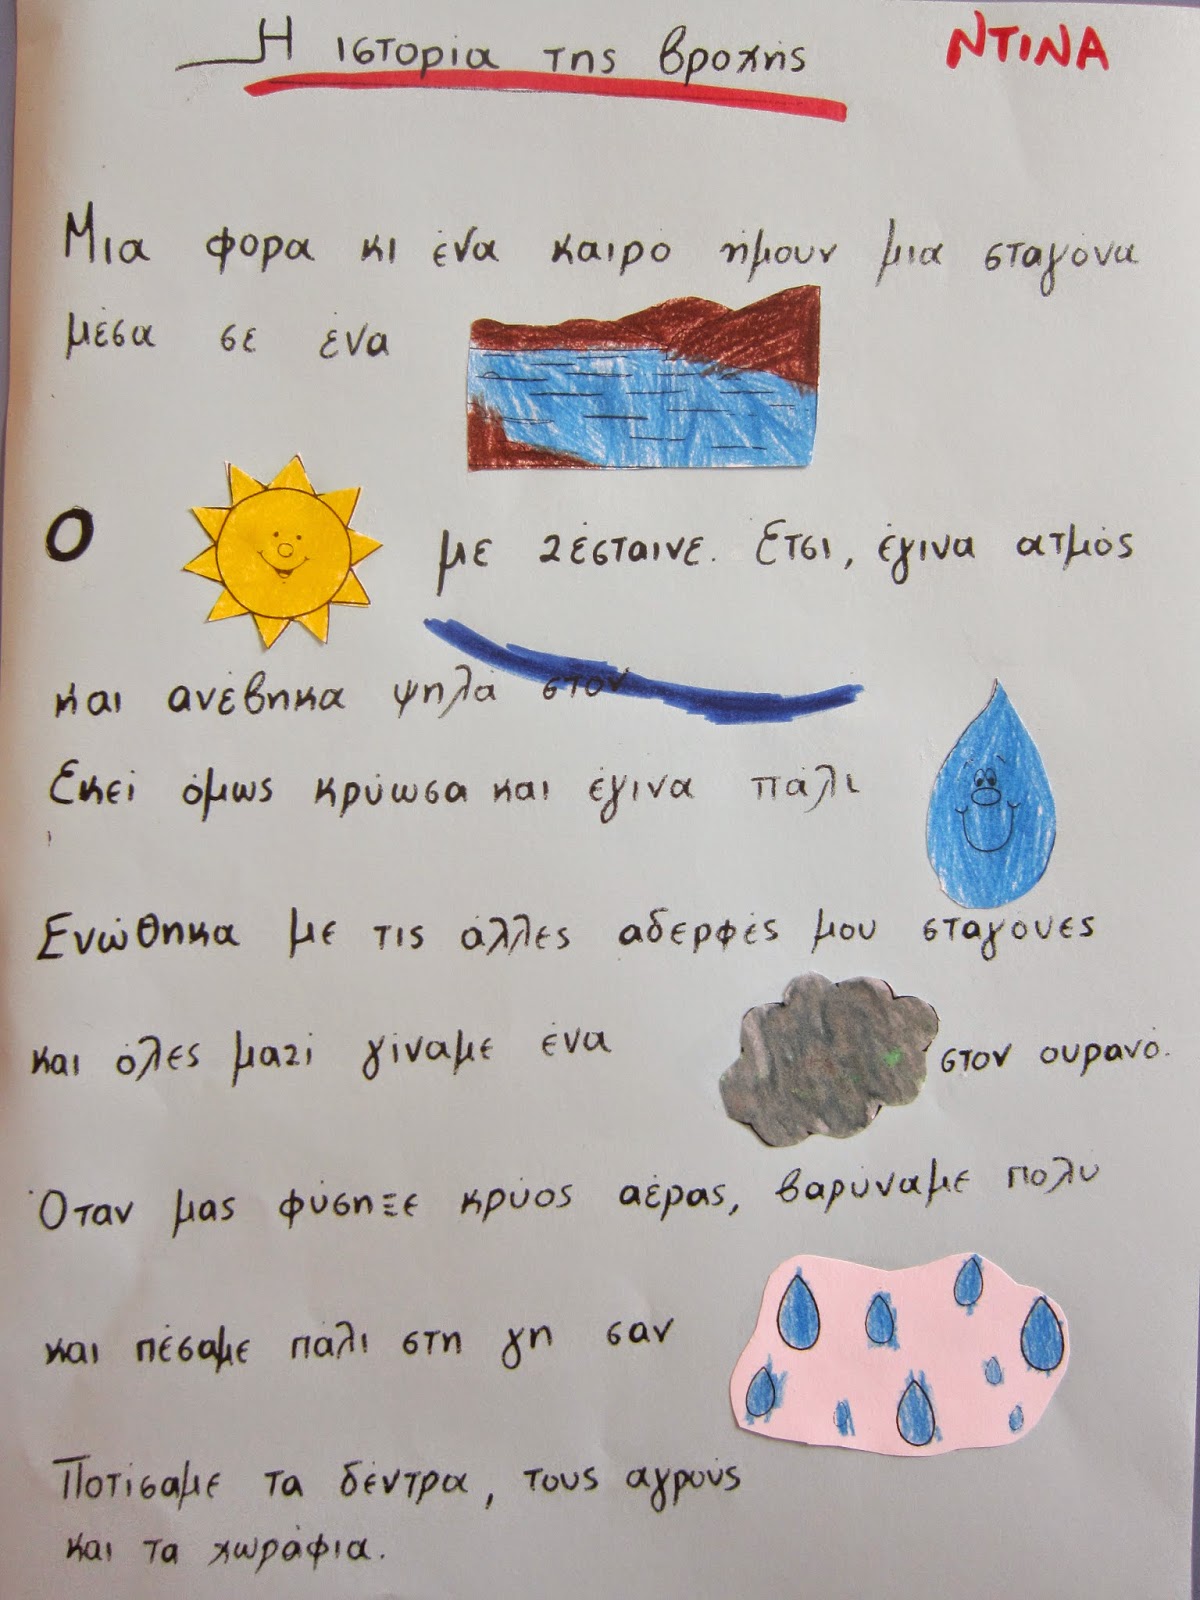 Η ιστορία της βροχής ΝΤΙΝΑ
Μια φορα κι ένα καιρό ήμουν μια σταγόνα
μέσα σε ένα
Ο με ζέσταινε. Έτσι, έγινα ατμός
και ανέβηκα ψηλά στον
Εκεί όμως κρύωσα και έγινα πάλι
Ενώθηκα με τις άλλες αδερφές μου σταγόνες
και όλες μαζί γίναμε ένα στον ουρανό.
Όταν μας φύσηξε κρύος αέρας, βαρύναμε πολύ
και πέσαμε πάλι στη γη σαν
Ποτίσαμε τα δέντρα, τους αγρούς
και τα χωράφια.